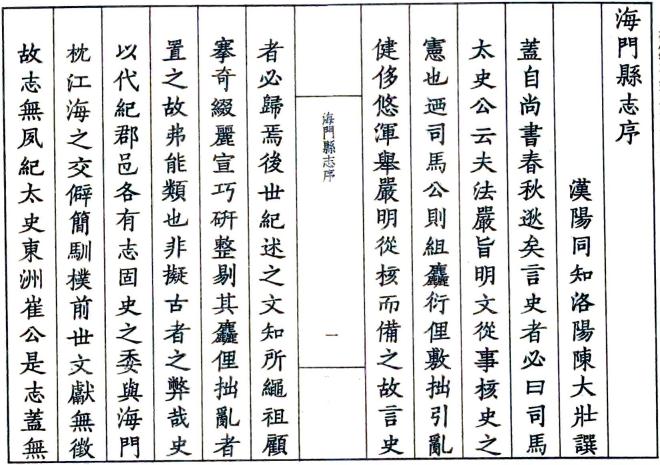 海門縣志序
漢陽同知洛陽陳大壯譔
蓋自尚書春秋逖矣言史者必曰司馬
太史公云夫法嚴旨明文從事核史之
憲也迺司馬公則組麤衍俚敷拙引亂
健侈悠渾舉嚴明從核而備之故言史
海門縣志序
一
者必歸焉後世紀述之文知所繩祖顧
搴奇綴麗宣巧硏整剔其麤俚拙亂者
置之故弗能類也非擬古者之弊哉史
以代紀郡邑各有志固史之委與海門
枕江海之交僻簡馴樸前世文獻無徵
故志無夙紀太史東洲崔公是志蓋無